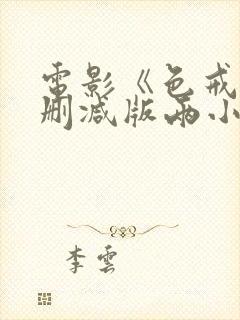 電影《色戒
删减版两小
李雲